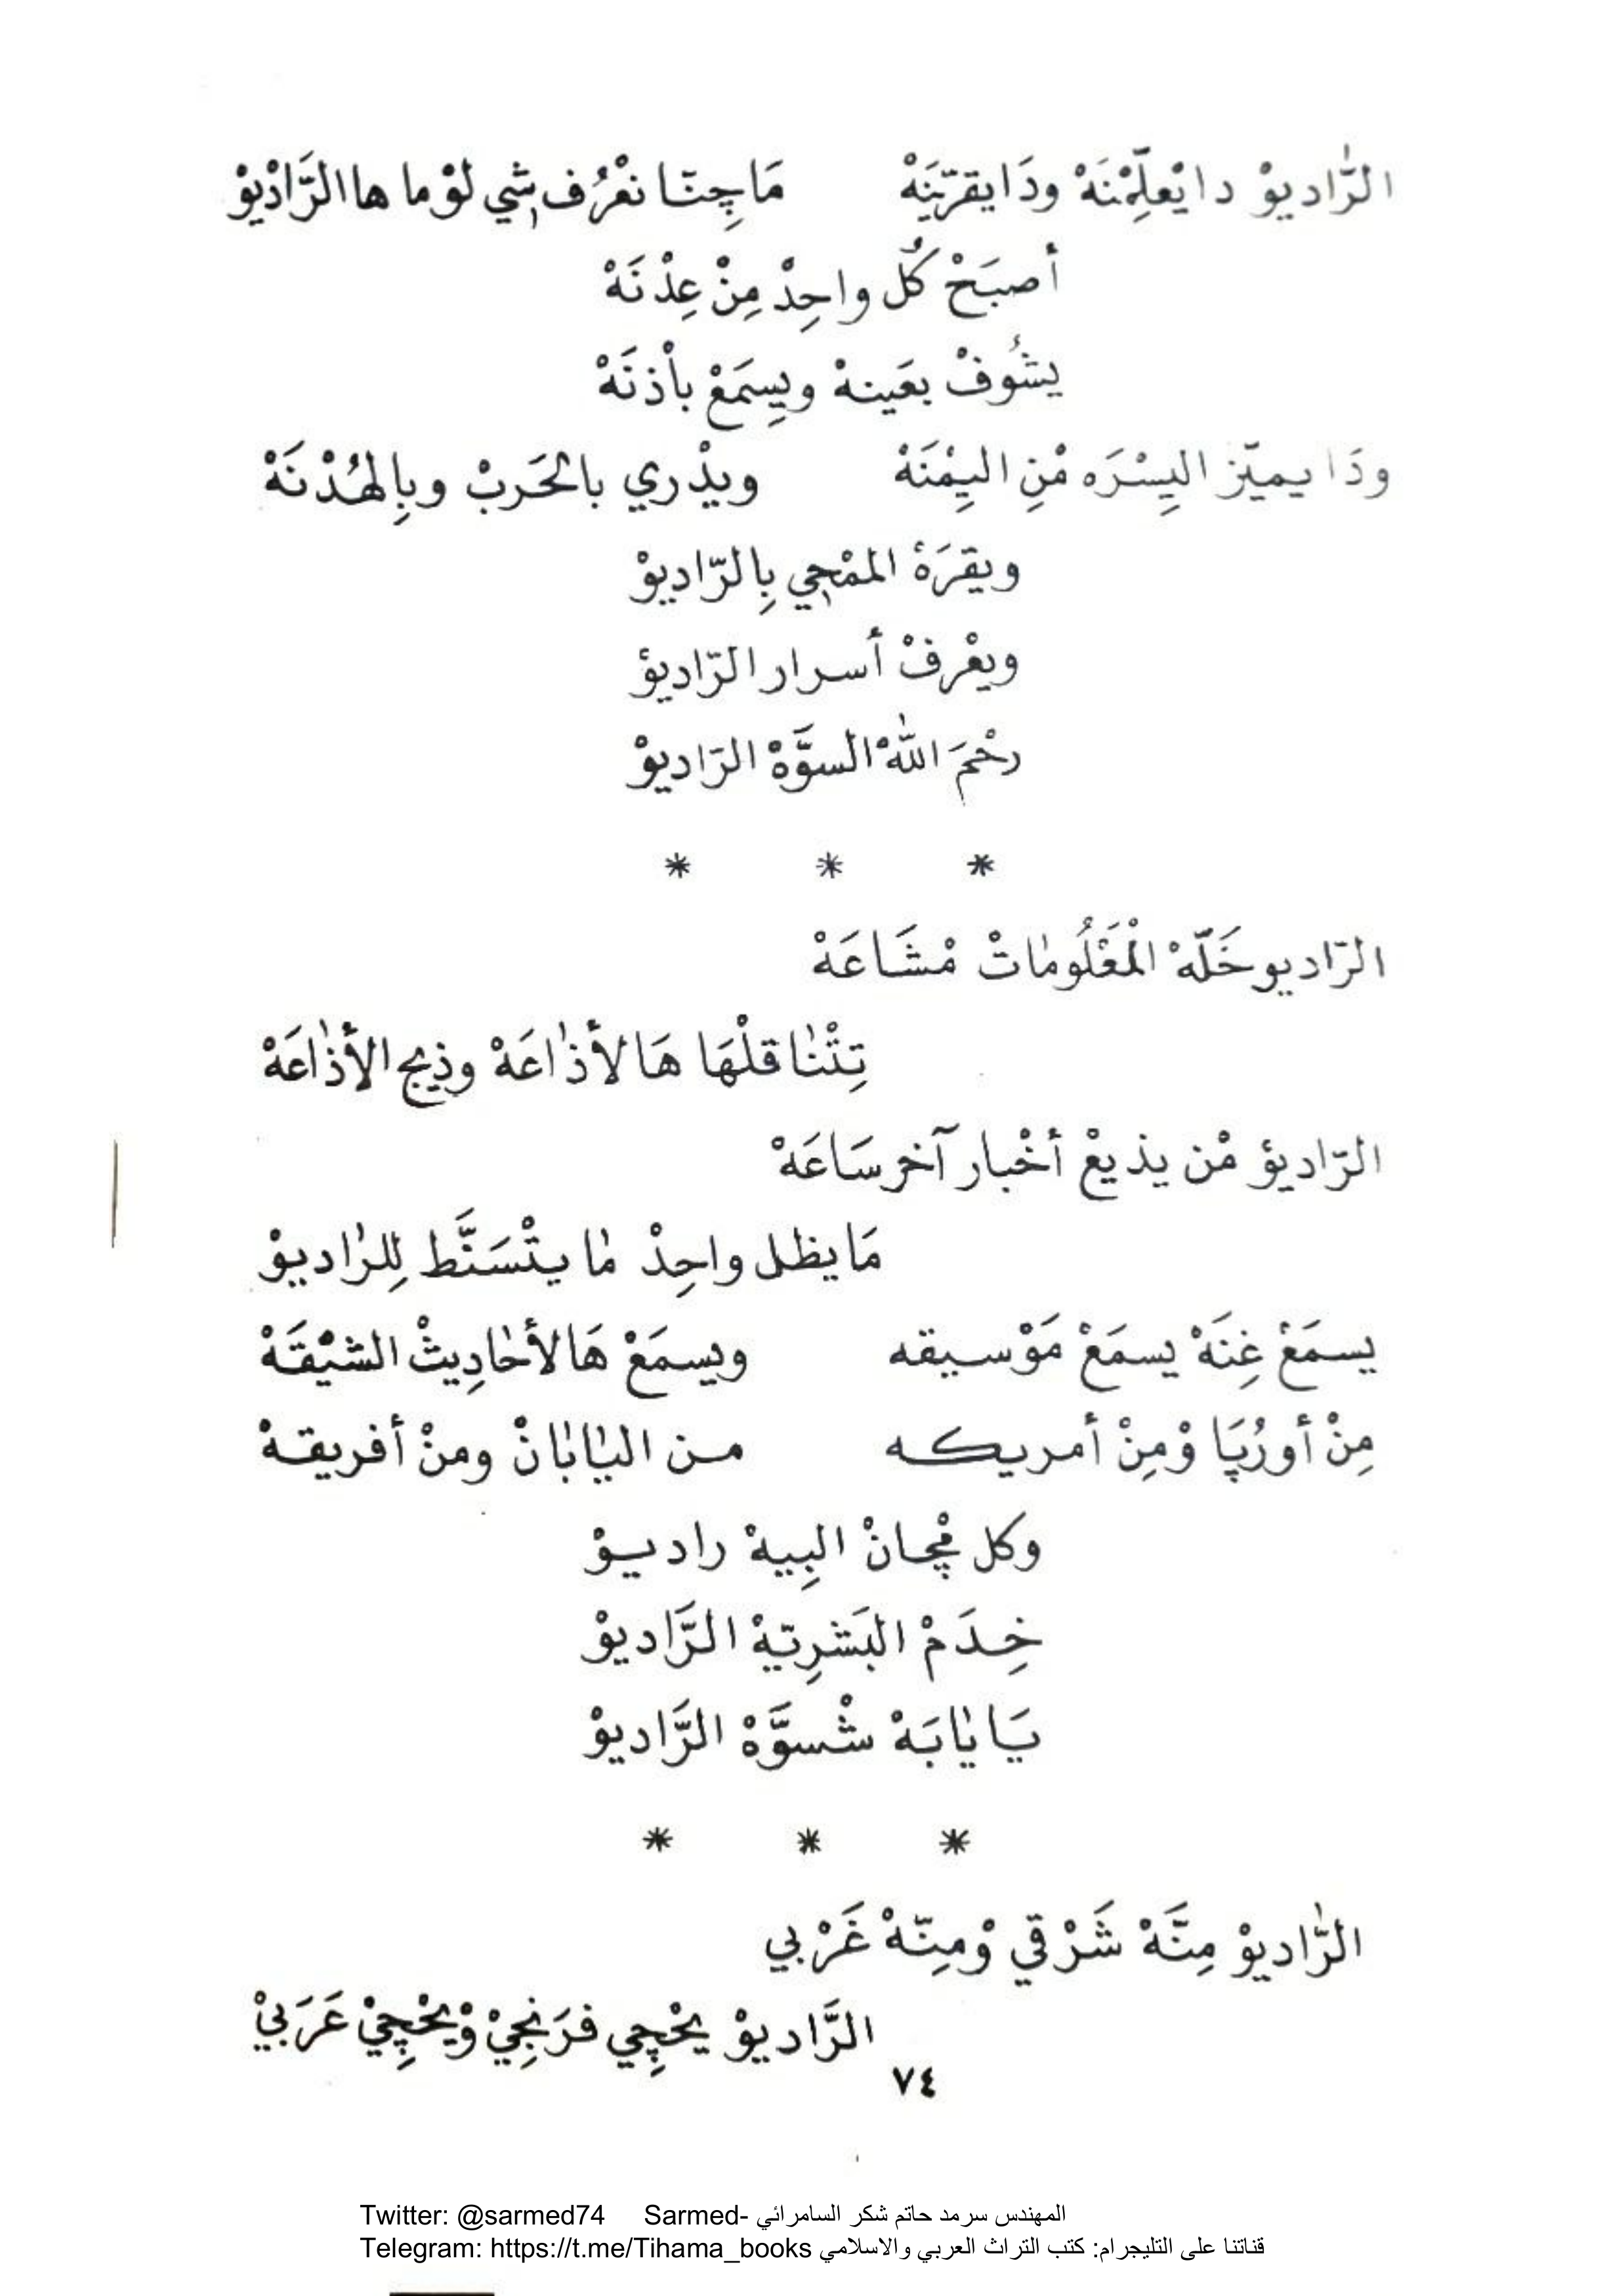 الرَّاديوْ دايْعلِّمْنَهْ ودَايقرّيَنِهْ مَاچِنّا نعْرُف شِي لوْما هاالرَّادْيوْ
أصبَحْ كُل واحِدْ مِنْ عِدْنَهْ
يشُوفْ بعَينهْ ويسِمَعْ بأذنَهْ
ودَا يميّز اليِسْرَه مْنِ اليِمْنَهْ ويدْري بالحَربْ وبِالهُدْنَهْ
ويقرَهْ الممْحِي بِالرّاديوْ
ويعْرفْ أسرار الرّاديوْ
رحْمَ اللهْ السوَّهْ الرّاديوْ
* * *
الرّاديو خَلَّهْ الْمَعْلُومَاتْ مْشَاعَهْ
تِتْنَاقلْهَا هَالأذَاعَهْ وذِيچ الأذَاعَهْ
الرّاديوْ مْن يذيعْ أخْبار آخر سَاعَهْ
مَايظل واحِدْ مَا يتْسَنَّط لِلرَاديوْ
يسمَعْ غِنَهْ يسمَعْ مَوْسيقه ويسمَعْ هَالأحَادِيثْ الشيّقَهْ
مِنْ أورُپَا وْمِنْ أمريكه من اليَابَانْ ومنْ أفريقهْ
وكل مْچانْ البِيهْ راديوْ
خِدَمْ البَشرِيّهْ الرَّاديوْ
يَايَابَهْ شْسوَّهْ الرَّاديوْ
* * *
الرَّاديوْ مِنَّهْ شَرْقي وْمِنّهْ غَرْبي
الرَّاديوْ يحْچِي فرَنجِيْ وْيحْچِيْ عَرَبيْ
٧٤
Twitter: @sarmed74 Sarmed- المهندس سرمد حاتم شكر السامرائي
Telegram: https://t.me/Tihama_books قناتنا على التليجرام: كتب التراث العربي والاسلامي